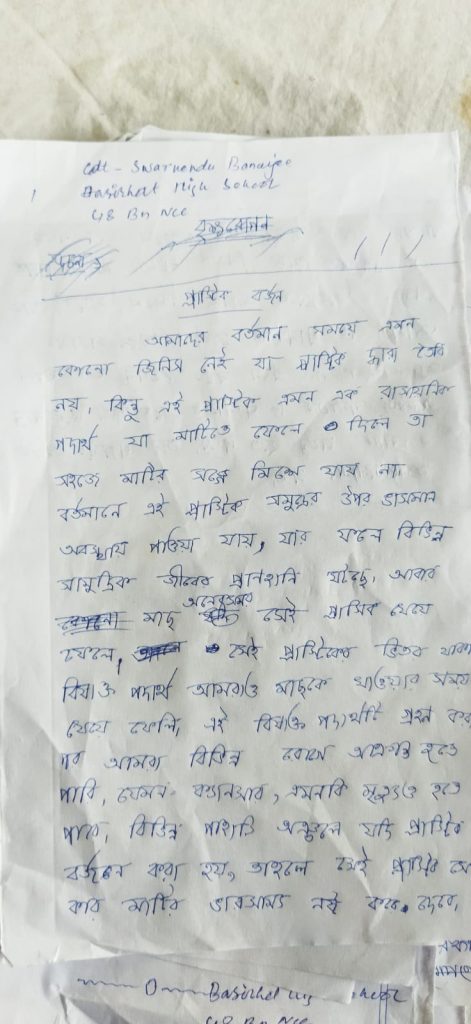 Cdt - Swarnendu Banerjee
Basirhat High School
48 Bn NCC
বৃক্ষরোপন
প্লাস্টিক বর্জন
আমাদের বর্তমান সময়ে এমন
কোনো জিনিস নেই যা প্লাস্টিক দ্বারা তৈরি
নয়, কিন্তু এই প্লাস্টিক এমন এক রাসায়নিক
পদার্থ যা মাটিতে ফেলে দিলে তা
সহজে মাটির সঙ্গে মিশে যায় না।
বর্তমানে এই প্লাস্টিক সমুদ্রের উপর ভাসমান
অবস্থায় পাওয়া যায়, যার ফলে বিভিন্ন
সামুদ্রিক জীবের প্রানহানি ঘটছে, আবার
মাছ অনেকসময় সেই প্লাস্টিক খেয়ে
ফেলে, সেই প্লাস্টিকের ভিতর থাকা
বিষাক্ত পদার্থ আমরাও মাছকে খাওয়ার সময়
খেয়ে ফেলি, এই বিষাক্ত পদার্থটি গ্রহন কর
পর আমরা বিভিন্ন রোগে আক্রান্ত হতে
পারি, যেমন- ক্যানসার, এমনকি মৃত্যুও হতে
পারে, বিভিন্ন পাহাড়ি অঞ্চলে যদি প্লাস্টিক
বর্জন করা হয়, তাহলে সেই প্লাস্টিক সে
কার মাটির ভারসাম্য নষ্ট করে দেবে,
Basirhat
48 Bn NCC